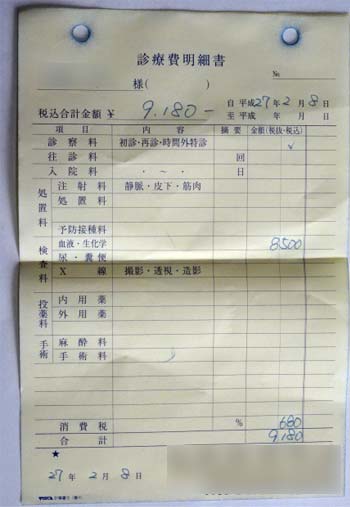 診療費明細書
様( ) №
税込合計金額 ¥ 9.180-
自 平成27年2月8日
至 平成 年 月 日
項目 内容 摘要 金額(税抜・税込)
診察料 初診・再診・時間外特診 ✓
往診料 回
入院料 ・ ~ ・ 日
処置料 注射料 静脈・皮下・筋肉
処置料
予防接種料
検査料 血液・生化学 8500
尿・糞便
X線 撮影・透視・造影
投薬料 内用薬
外用薬
手術 麻酔料
手術料
消費税 % 680
合計 9180
★
27年2月8日